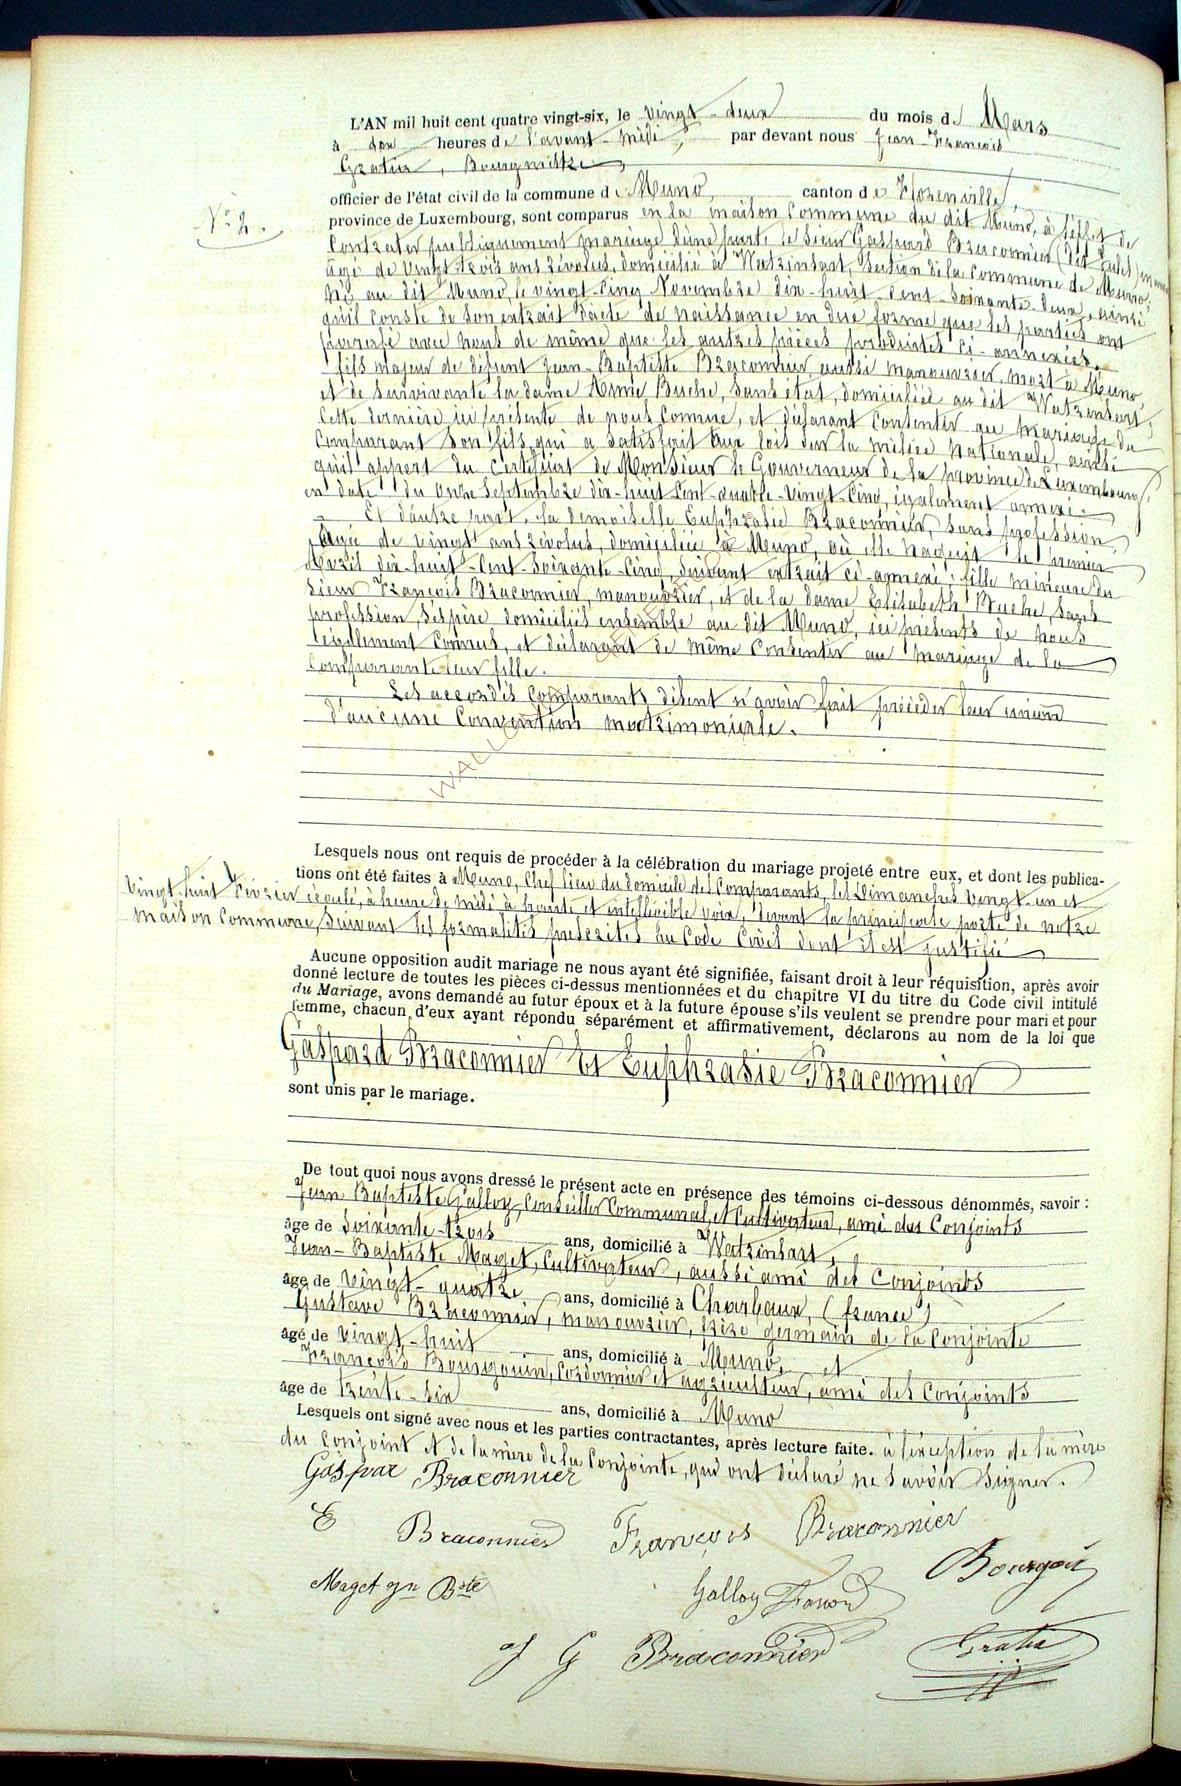 L'AN mil huit cent quatre vingt-six, le vingt-deux du mois de Mars
à dix heures de l'avant-midi, par devant nous Jean-François
Gratia, Bourgmestre
officier de l'état civil de la commune de Muno, canton de Florenville,
N° 2.
province de Luxembourg, sont comparus en la maison Commune du dit Muno, à l'effet de
Contracter publiquement mariage d'une part, le sieur Gaspard Braconnier (dit
âgé de vingt-trois ans révolus, domicilié à Watrinsart, section de la commune de Muno,
né au dit Muno, le vingt-cinq Novembre dix-huit-cent-soixante-deux, ainsi
qu'il conste de son extrait d'acte de naissance en due forme que les parties ont
paraphé avec nous de même que les autres pièces produites ci-annexées.
fils majeur de défunt Jean-Baptiste Braconnier, aussi manouvrier, mort à Muno,
et de survivante la dame Anne Buche, sans état, domiciliée au dit Watrinsart,
Cette dernière ici présente de nous Connue, et déclarant Consentir au mariage du
Comparant son fils, qui a satisfait aux lois sur la milice Nationale, ainsi
qu'il appert du Certificat de Monsieur le Gouverneur de la province de Luxembourg,
en date du onze Septembre dix-huit-Cent-quatre-vingt-Cinq, également annexé.
Et d'autre part, la demoiselle Euphrasie Braconnier, sans profession,
Agée de vingt ans révolus, domiciliée à Muno, où elle naquit le premier
Avril dix-huit-Cent-soixante-Cinq, suivant extrait ci-annexé; fille mineure du
sieur François Braconnier, manouvrier, et de la dame Elisabeth Buche, sans
profession, domiciliés ensemble au dit Muno, ici présents de nous
également Connus, et déclarant de même Consentir au mariage de la
Comparante leur fille.
Les accordés Comparants disent n'avoir fait précéder leur union
d'aucune Convention matrimoniale.
WALLONIA
Lesquels nous ont requis de procéder à la célébration du mariage projeté entre eux, et dont les publica-
tions ont été faites à Muno, Chef lieu du domicile des Comparants, les Dimanches vingt-un et
vingt-huit Février écoulé, à heure de midi à haute et intelligible voix, devant la principale porte de notre
maison Commune, suivant les formalités prescrites au Code Civil dont il est justifié
Aucune opposition audit mariage ne nous ayant été signifiée, faisant droit à leur réquisition, après avoir
donné lecture de toutes les pièces ci-dessus mentionnées et du chapitre VI du titre du Code civil intitulé
du Mariage, avons demandé au futur époux et à la future épouse s'ils veulent se prendre pour mari et pour
femme, chacun d'eux ayant répondu séparément et affirmativement, déclarons au nom de la loi que
Gaspard Braconnier Et Euphrasie Braconnier
sont unis par le mariage.
De tout quoi nous avons dressé le présent acte en présence des témoins ci-dessous dénommés, savoir :
Jean Baptiste Galloy, Conseiller Communal, et Cultivateur, ami des Conjoints
âge de soixante-trois ans, domicilié à Watrinsart,
Jean-Baptiste Maget, Cultivateur, aussi ami des Conjoints
âge de vingt-quatre ans, domicilié à Charbeaux, (france)
Gustave Braconnier, manouvrier, frère germain de la Conjointe
âgé de vingt-huit ans, domicilié à Muno, et
François Bourgouin, Cordonnier et agriculteur, ami des Conjoints
âge de trente-six ans, domicilié à Muno
Lesquels ont signé avec nous et les parties contractantes, après lecture faite. à l'exception de la mère
du Conjoint et de la mère de la Conjointe, qui ont déclaré ne savoir signer.
Gaspar Braconnier
E Braconnier François Braconnier
Maget Jn Bste Galloy Bourgoin
J G Braconnier Gratia